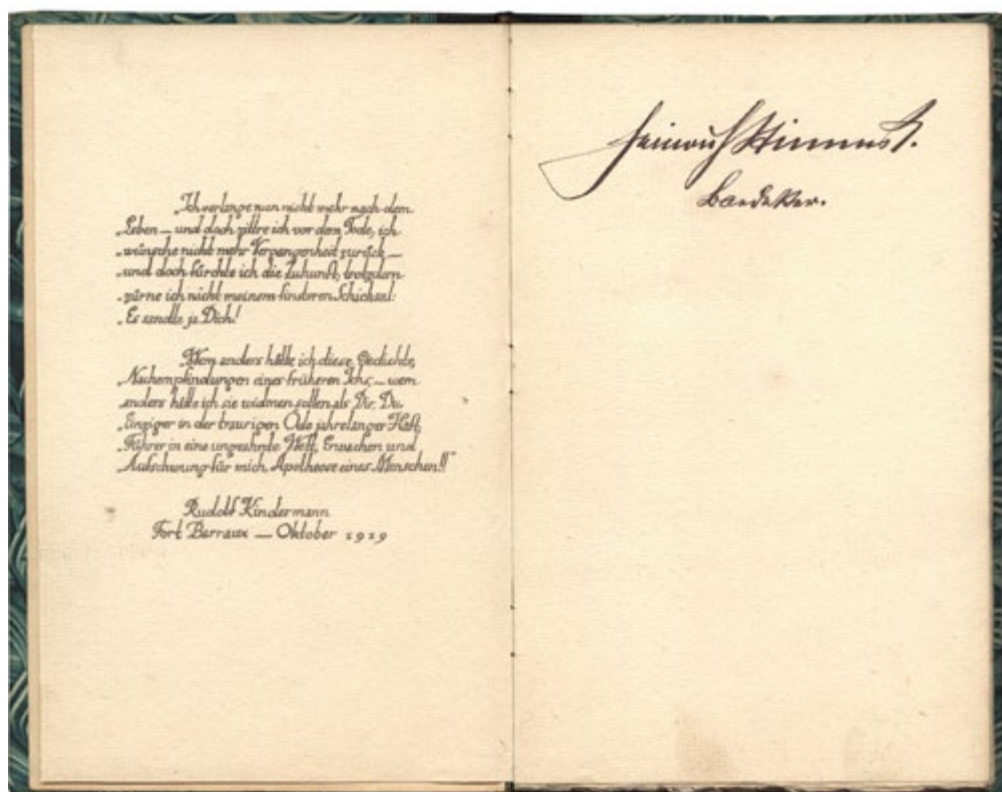 „Ich verlange nun nicht mehr nach dem
„Leben — und doch zittre ich vor dem Tode, ich
„wünsche nicht mehr Vergangenheit zurück —
„und doch fürchte ich die Zukunft; trotzdem
„zürne ich nicht meinem finsteren Schicksal:
„Es sandte ja Dich!
„Wem anders hätte ich diese Gedichte,
„Nachempfindungen eines früheren Ichs, — wem
„anders hätte ich sie widmen sollen als Dir, Du
„Einziger in der traurigen Öde jahrelanger Haft,
„Führer in eine ungeahnte Welt, Erwachen und
„Aufschwung für mich, Apotheose eines Menschen!!"
Rudolf Kindermann
Fort Barraux — Oktober 1919
Heinrich Stinnes
Baedeker.